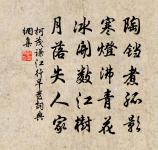 陶鐺煮孤影
寒燈沸青花
冰開數江樹
月落失人家
柯茂謀江行早舊詞典
網集